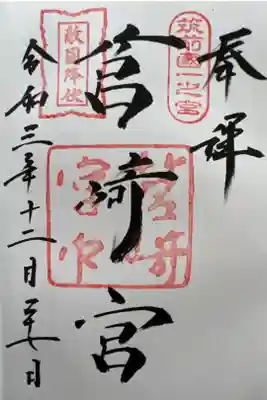 奉拝
筑前國一之宮
筥崎宮
敵国降伏
令和三年十二月二十七日